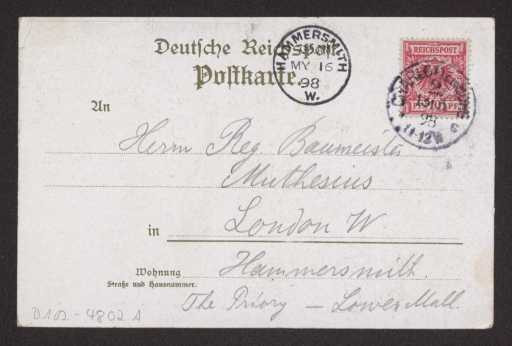 Deutsche Reichspost
Postkarte
HAMMERSMITH
MY 16
98
W.
REICHSPOST
11-12 V
An
Herrn Reg. Baumeister
Muthesius
in London W.
Wohnung Hammersmith.
Straße und Hausnummer.
The Priory – Lower Mall.
D 102-4802 A